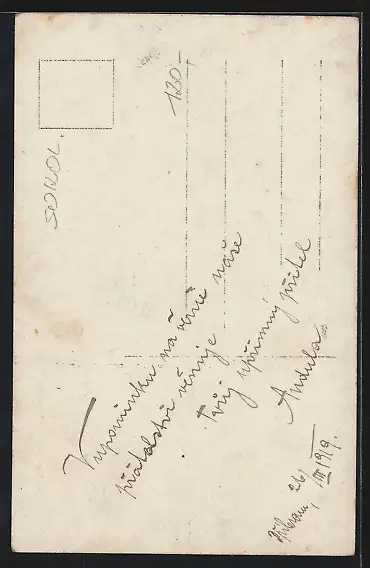 SOKOL.
120-
Vzpomínku na věčné naše
přátelství věnuje
Tvůj upřímný přítel
Andula
Příbram, 26/III 1919.